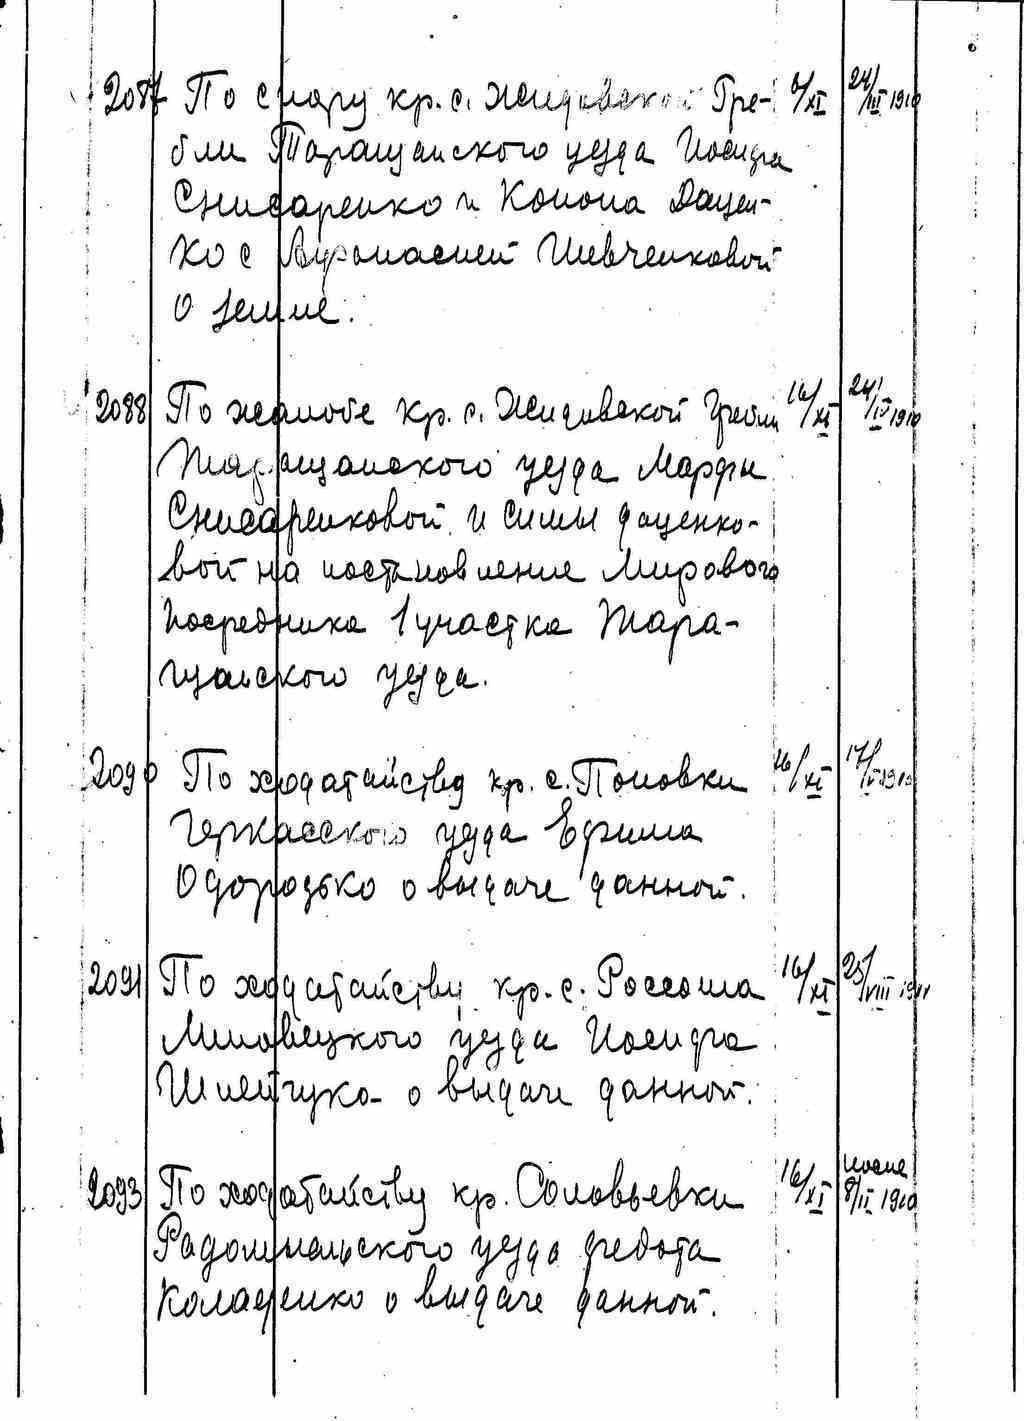 2087 По спору кр. с. Жидовской Гре- 24/III 1910
бли Таращанского уезда Иосифа
Снисаренко и Конона Дацен-
ко с Афанасией Шевченковой
о земле.
2088 По жалобе кр. с. Жидовской Гребли 16/XI 24/IV 1910
Таращанского уезда Марфы
Снисаренковой и Симы Даценко-
вой на постановление Мирового
посредника 1 участка Тара-
щанского уезда.
2090 По ходатайству кр. с. Поповки 16/XI
Черкасского уезда Ефима
о выдаче данной.
2091 По ходатайству кр. с. Россоша 16/XI 25/VIII 1911
Липовецкого уезда Иосифа
о выдаче данной.
2093 По ходатайству кр. Соловьевки 16/XI после 8/II 1910
Радомысльского уезда Федота
о выдаче данной.